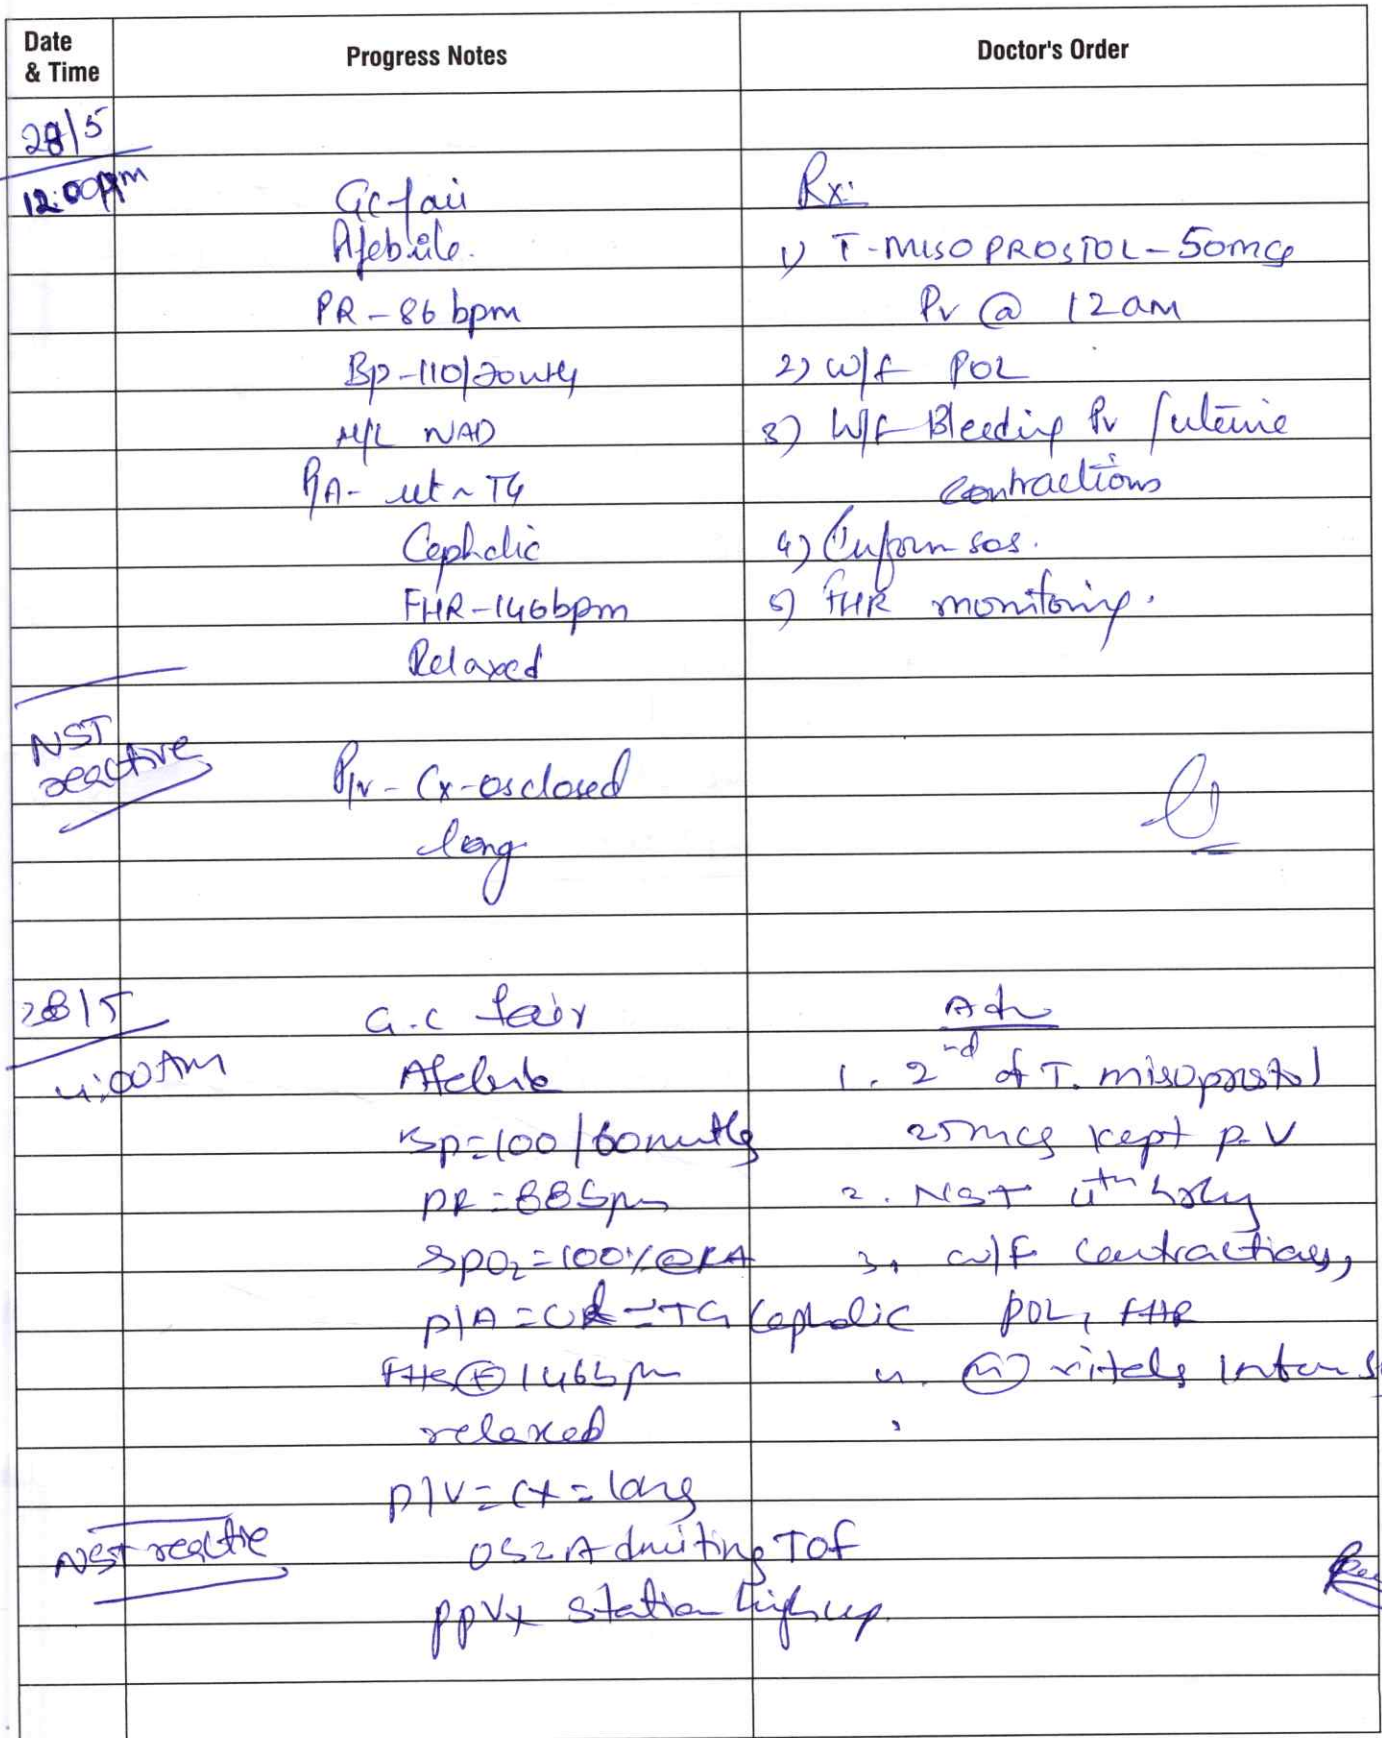 Date & Time
Progress Notes
Doctor's Order
28/5
12:00pm
GC-fair
Rx:
Afebrile.
1) T-MISOPROSTOL-50mcg
PR-86 bpm
Pv @ 12am
Bp-110/70mmHg
2) w/f POL
H/L NAD
3) W/F Bleeding Pv /uterine
P/A- ut ~ TG
contractions
Cephalic
4) Inform sos.
FHR-146bpm
5) FHR monitoring.
Relaxed
NST
reactive
P/v- Cx-os closed
long
28/5
G.C fair
Adv
4:00Am
Afebrile
1. 2nd of T. misoprostol
Bp=100/60mmHg
25mcg kept p-V
PR=88bpm
2. NST 4th hrly
SpO2=100%@RA
3. w/F contractions,
P/A=Ut=TG Cephalic
POL, FHR
FHS⊕146bpm
4. (m) vitals Inform
relaxed
P/V=CX=long
NST reactie
OS=Admitting TOF
ppVx station high up.